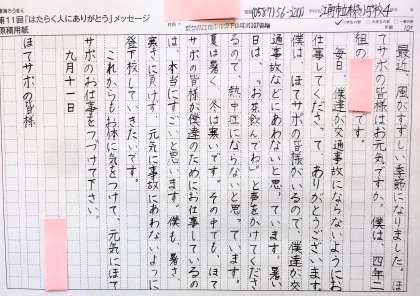 第11回「はたらく人にありがとう」メッセージ
原稿用紙
最近、風がすずしい季節になりました。ほ
てサポの皆様はお元気ですか。僕は、四年二
組の です。
毎日、僕達が交通事故にならないようにお
仕事してくださって、ありがとうございます。
僕は、ほてサポの皆様がいるので、僕達が交
通事故などにあわないと思っています。暑い
日は、「お茶飲んでね」と声をかけてくださ
るので、熱中症にならないと思っています。
夏は暑く、冬は寒いです。その中でも、ほて
サポの皆様が僕達のためにお仕事しているの
は、本当にすごいと思います。僕も、暑さ、
寒さに負けず、元気に事故にあわないように
登下校していきたいです。
これからもお体に気をつけて、元気にほて
サポのお仕事をつづけて下さい。
九月十一日
ほてサポの皆様